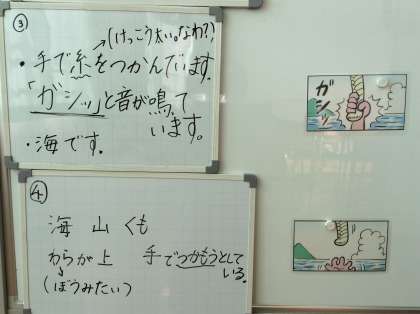 ③
(けっこう太い。なわ?)
・手で糸をつかんでいます。
「ガシッ」と音が鳴って
います。
・海です。
④
海 山 くも
わらが上 手でつかもうとして
いる。
(ぼうみたい)
ガシッ